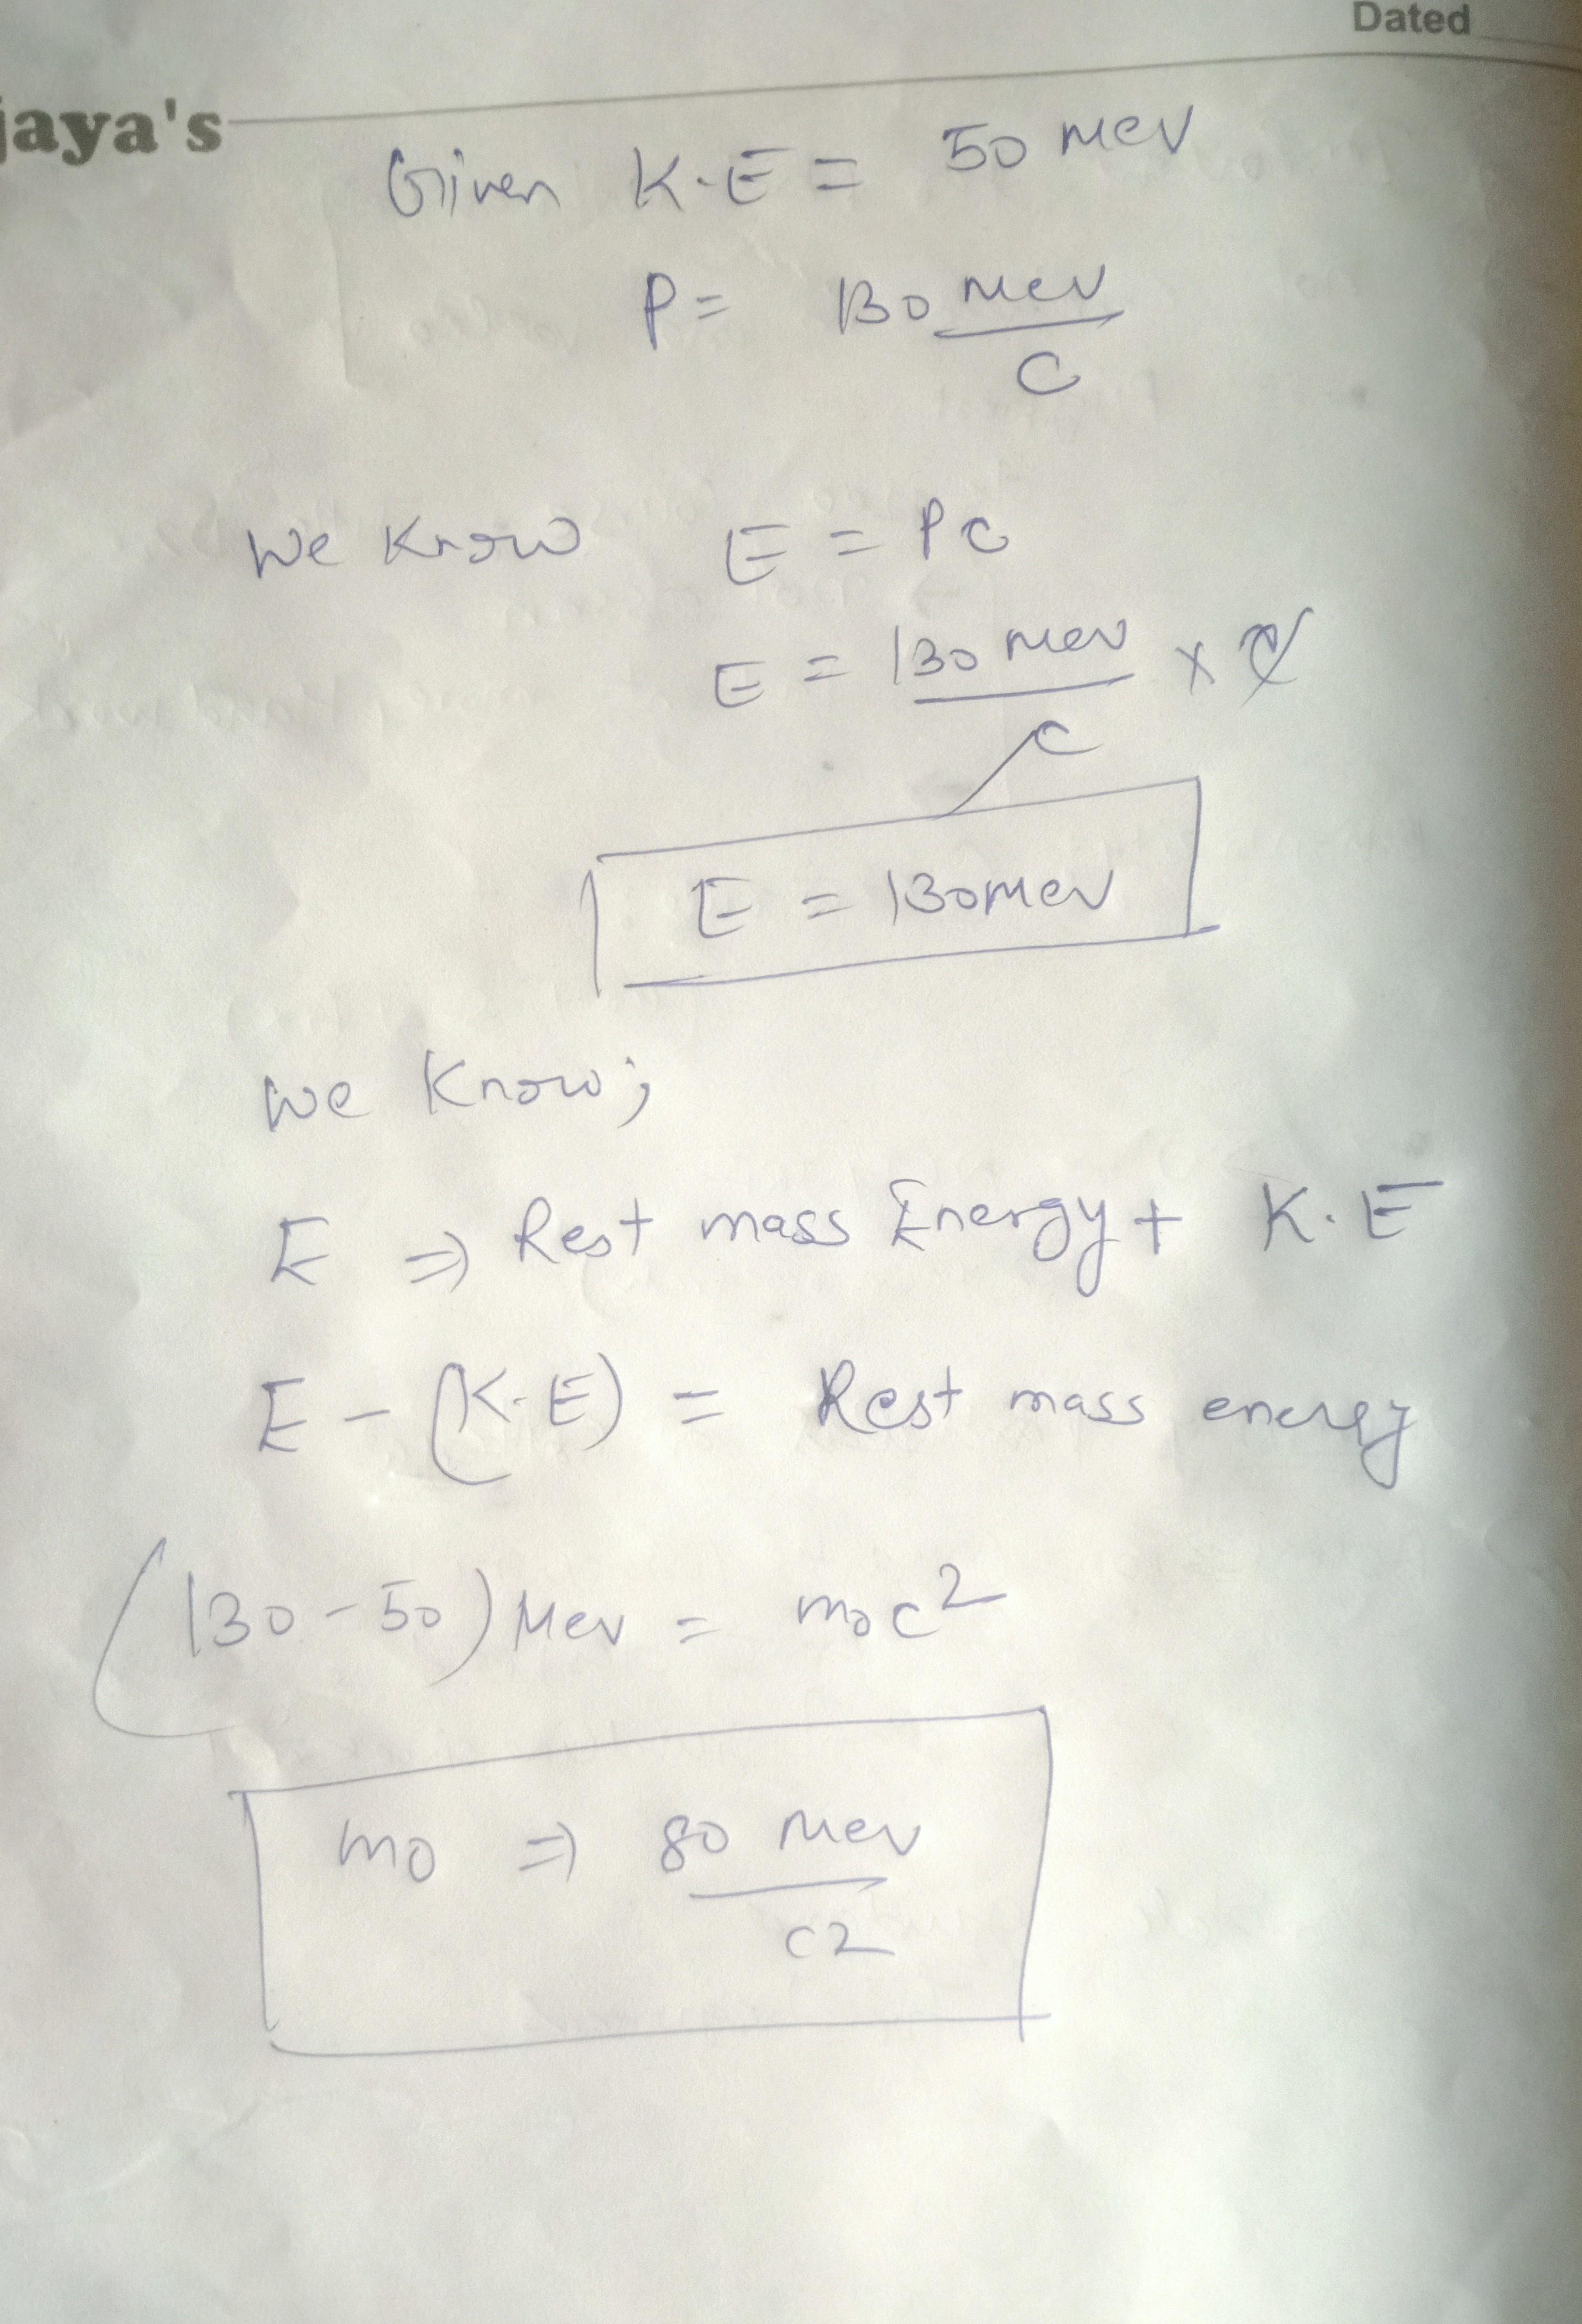 Dated
jaya's
Given K.E = 50 Mev
P = 130 Mev
C
We Know E = PC
E = 130 Mev × C
C
E = 130Mev
We Know;
E ⇒ Rest mass Energy + K.E
E - (K.E) = Rest mass energy
(130-50) Mev = m₀c²
m₀ ⇒ 80 Mev
c2